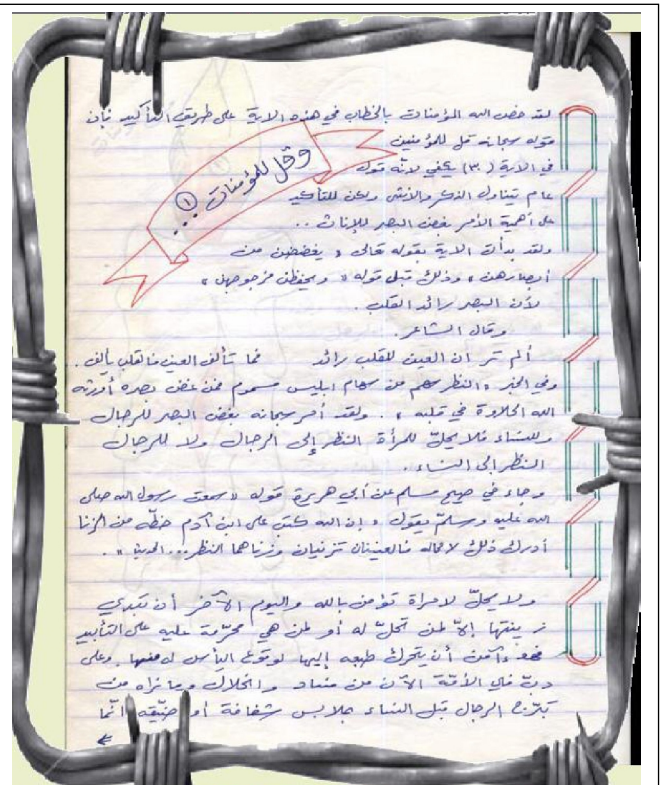 لقد خص الله المؤمنات بالخطاب في هذه الآية على طريق التأكيد فإن
قوله سبحانه قل للمؤمنين
في الآية (٣٠) يكفي لأنه قول
عام يتناول الذكر والأنثى ولكن للتأكيد
على أهمية الأمر بغض البصر للإناث ..
وقل للمؤمنات ... ①
ولقد بدأت الآية بقوله تعالى « يغضضن من
أبصارهن » وذلك قبل قوله « ويحفظن فروجهن »
لأن البصر رائد القلب .
وقال الشاعر .
ألم تر ان العين للقلب رائد فما تألف العين فالقلب يألف .
وفي الخبر « النظر سهم من سهام ابليس مسموم فمن غض بصره أورثه
الله الحلاوة في قلبه » . ولقد أمر سبحانه بغض البصر للرجال
وللنساء فلا يحلّ للمرأة النظر إلى الرجال ولا للرجال
النظر إلى النساء .
وجاء في صحيح مسلم عن أبي هريرة قوله « سمعت رسول الله صلى
الله عليه وسلم يقول « إن الله كتب على ابن آدم حظّه من الزنا
أدرك ذلك لا محالة فالعينان تزنيان وزناهما النظر ... الحديث » .
ولا يحلّ لامرأة تؤمن بالله واليوم الآخر أن تبدي
زينتها إلّا لمن تحلّ له أو لمن هي محرّمة عليه على التأبيد
فهو آمن أن يتحرك طبعه إليها لوقوع اليأس له منها . وعلى
فإن الأمّة الآن من فساد وانحلال وما نراه من
تبرّج الرجال قبل النساء بملابس شفافة أو ضيّقه إنّما